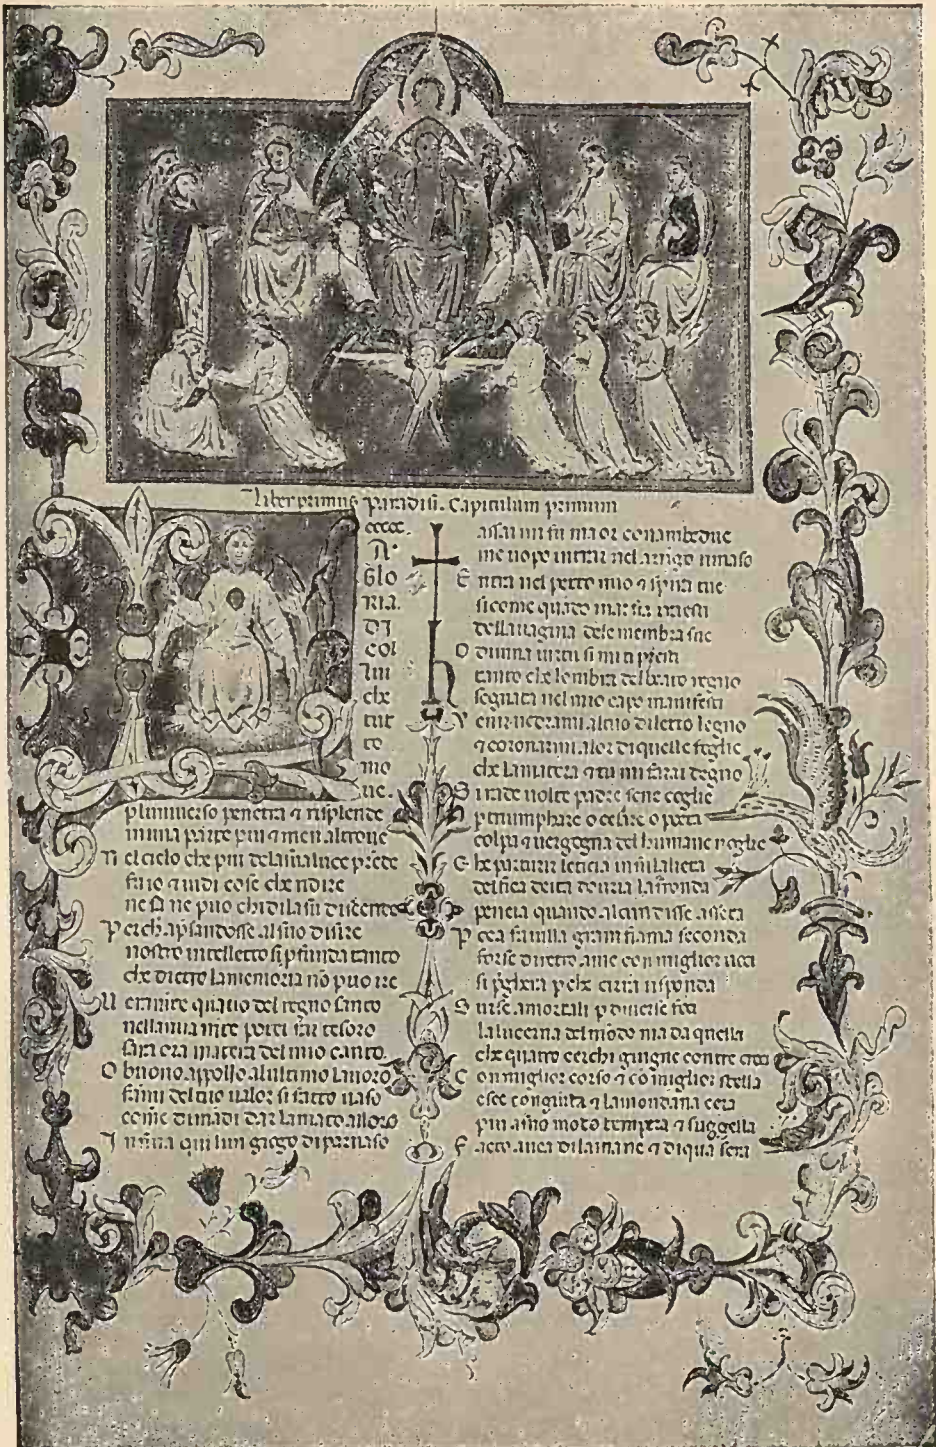 Liber primus Paradisi. Capitulum primum
ccccc.
GLO
RIA.
DI
COL
lui
che
tut
to
mo
ue.
pluniuerso penetra & risplende
in una parte piu & men altroue
Nel cielo che piu dela sua luce prede
fu io & uidi cose che ridire
ne sa ne puo chi di la su discende
Perch apsandosse al suo disire
nostro intelletto si pfunda tanto
che dietro la memoria nō puo ire
Ueramēte quāto del regno santo
nella mia mēte potei far tesoro
sara ora materia del mio canto.
O buono appollo alultimo lauoro
fami del tuo ualor si fatto uaso
come dimādi dar lamato alloro
Infina qui lun giogo di parnaso
assai mi fu ma or con ambedue
me uopo intrar nel aringo rimaso
Entra nel petto mio & spira tue
si come quādo marsia traesti
della uagina dele membra sue
O diuina uirtu si mi ti presti
tanto che lombra del beato regno
segnata nel mio capo manifesti
Uenir uedrami al tuo diletto legno
& coronarmi alor di quelle foglie
che la matera & tu mi farai degno
Si rade uolte padre sene coglie
p triumphare o cesare o poeta
colpa & uergogna del humane uoglie
Che parturir leticia in su la lieta
delfica deita douria la fronda
peneia quando alcun disse asseta
Poca fauilla gram fiama seconda
forse dietro a me con miglior uoci
si pgherà pche cirra risponda
Surge a mortali p diuerse foci
la lucerna del mōdo ma da quella
che quatro cerchi giugne con tre croci
Con miglior corso & cō miglior stella
esce congiūta & la mondana cera
piu a suo modo tempera & suggella
Facto auea di la mane & di qua sera